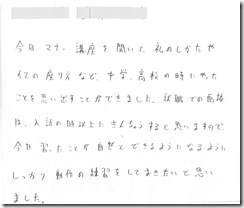 今日マナー講座を聞いて、礼のしかたや
イスの座り方など、中学、高校の時にやった
ことを思い出すことができました。就職での面接
は、入試の時以上にきんちょうすると思いますので、
今日習ったことが自然とできるようになるように
しっかり動作の練習をしておきたいと思い
ました。